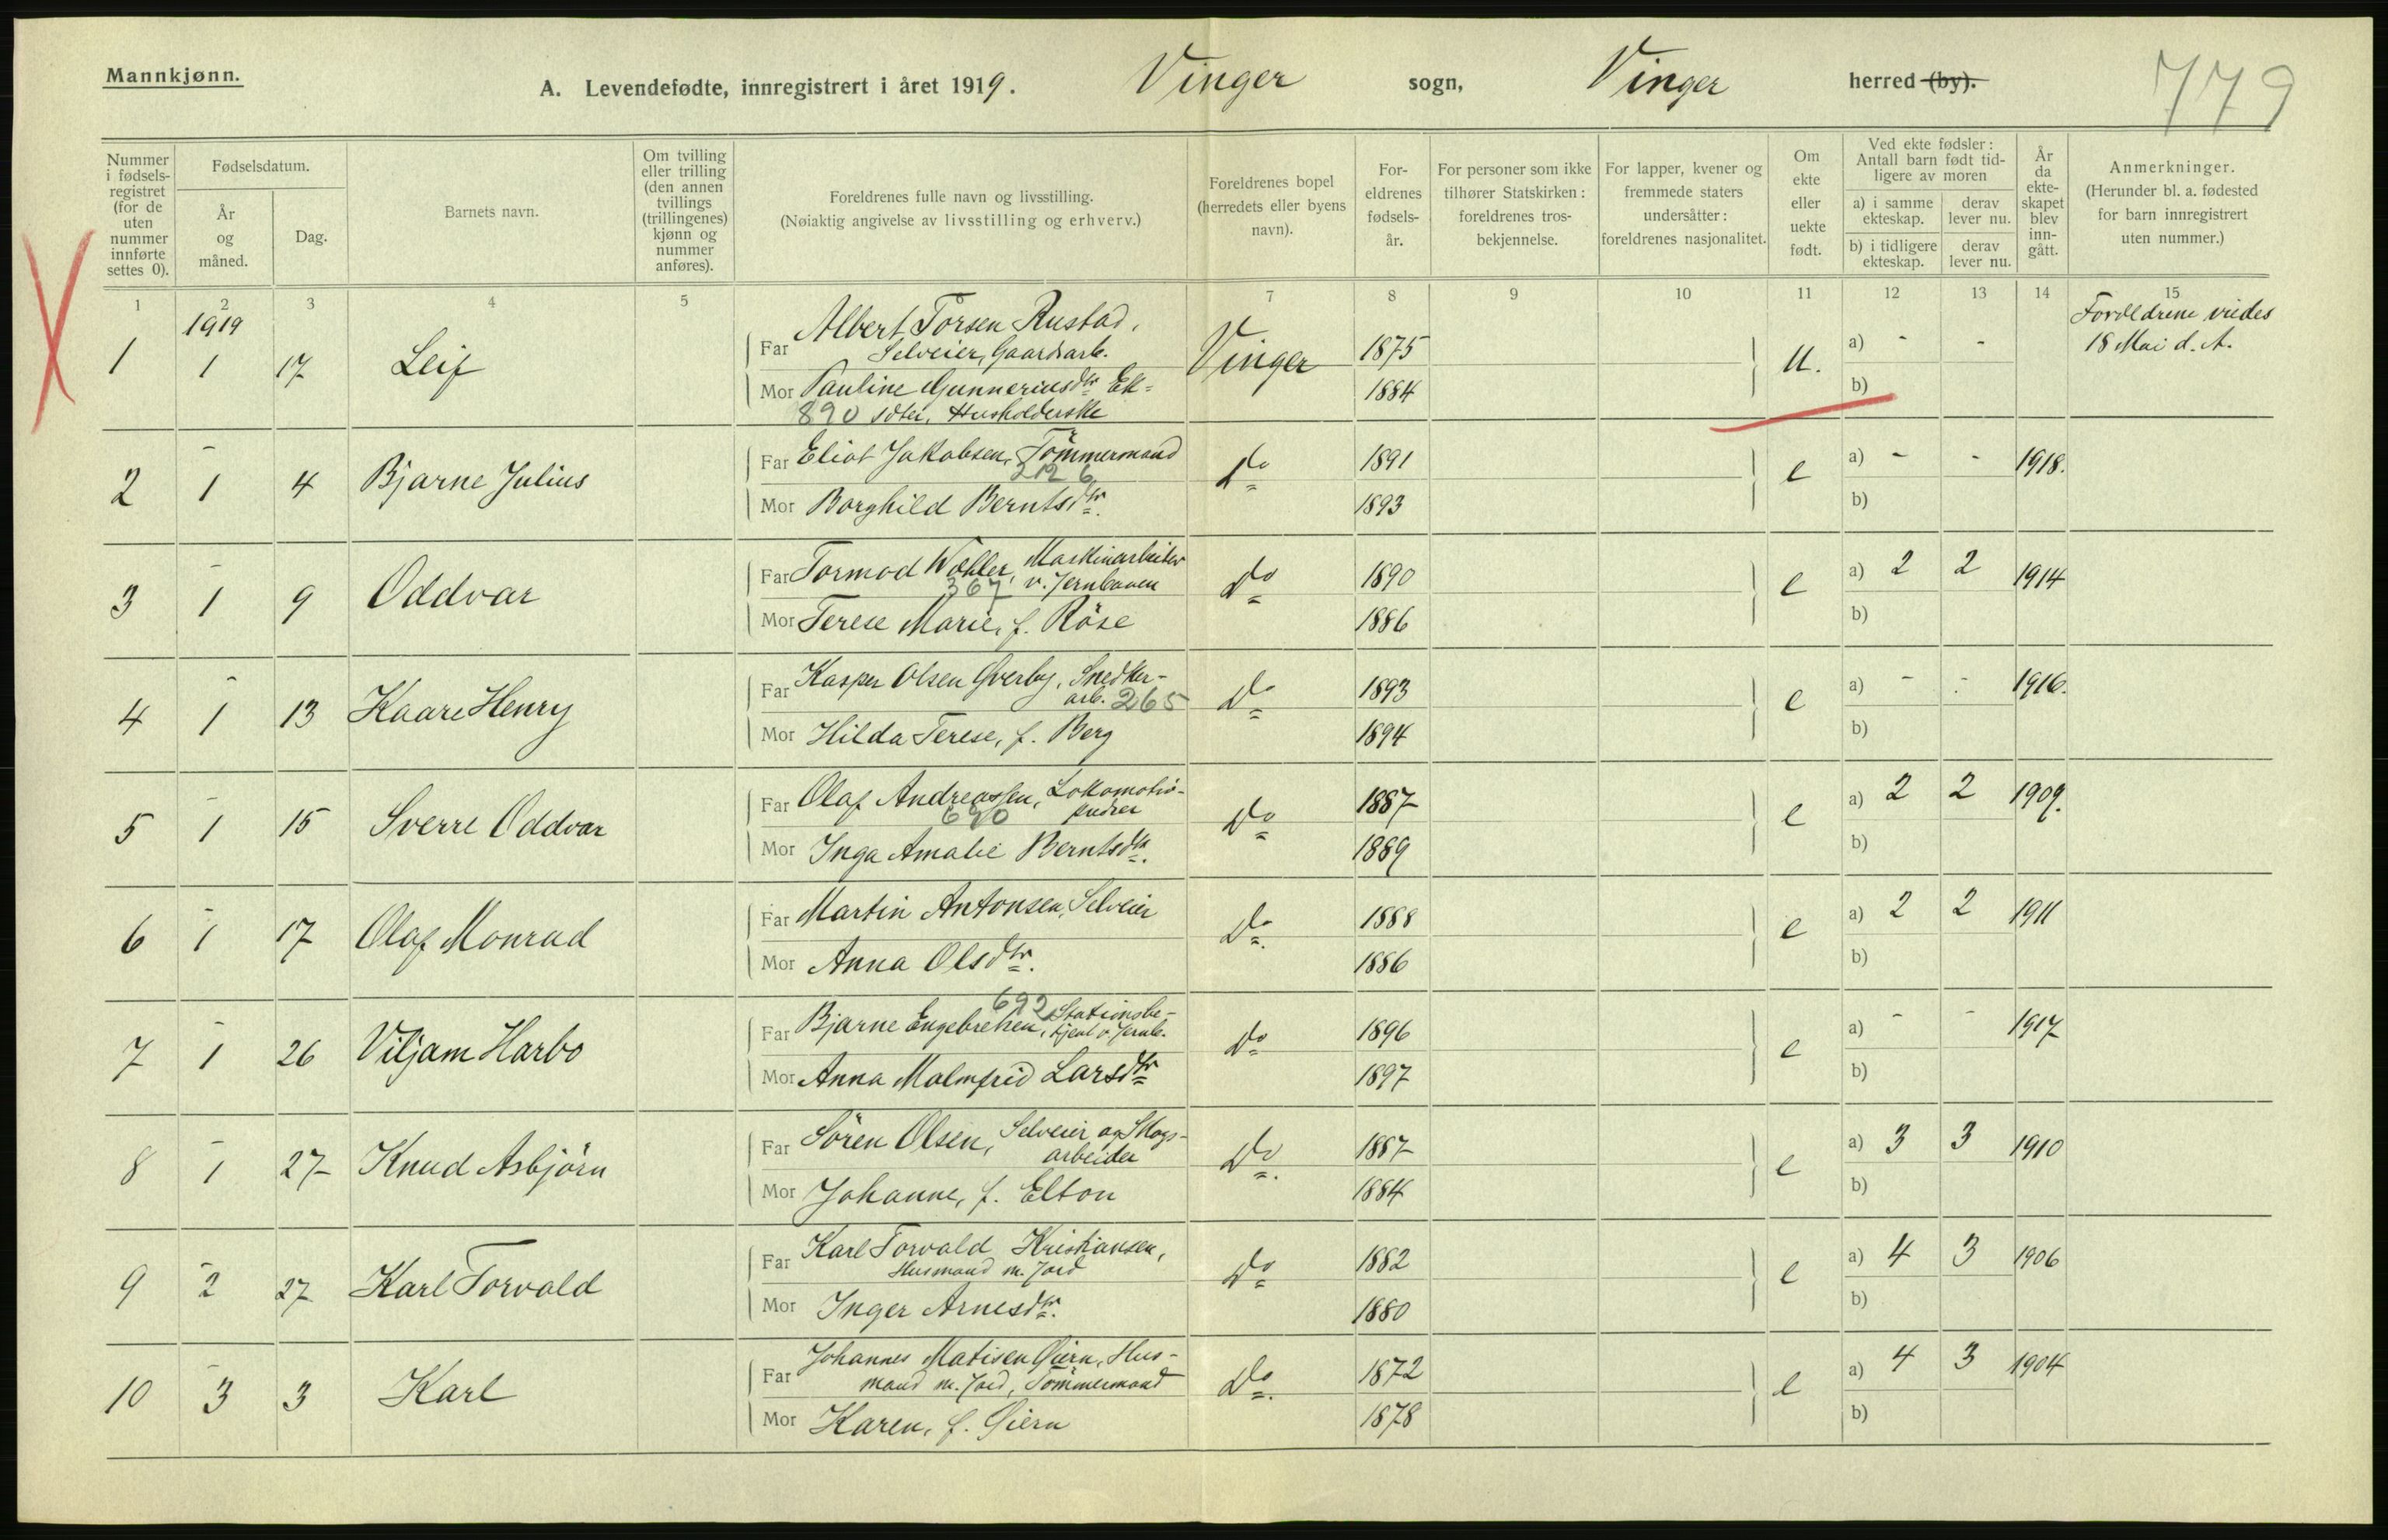 Mannkjønn.
A. Levendefødte, innregistrert i året 1919. Vinger sogn, Vinger herred (by). 779
Nummer i fødsels-registret (for de uten nummer innførte settes 0).
Fødselsdatum.
År og måned.
Dag.
Barnets navn.
Om tvilling eller trilling (den annen tvillings (trillingenes) kjønn og nummer anføres).
Foreldrenes fulle navn og livsstilling.
(Nøiaktig angivelse av livsstilling og erhverv.)
Foreldrenes bopel (herredets eller byens navn).
For-eldrenes fødsels-år.
For personer som ikke tilhører Statskirken: foreldrenes tros-bekjennelse.
For lapper, kvener og fremmede staters undersåtter: foreldrenes nasjonalitet.
Om ekte eller uekte født.
Ved ekte fødsler: Antall barn født tid-ligere av moren
a) i samme ekteskap. derav lever nu.
b) i tidligere ekteskap. derav lever nu.
År da ekte-skapet blev inn-gått.
Anmerkninger.
(Herunder bl. a. fødested for barn innregistrert uten nummer.)
1 2 3 4 5 6 7 8 9 10 11 12 13 14 15
1919
1 1 17 Leif
Far Albert Torsen Rustad,
Selveier, Gaardsarb.
Vinger 1875 U. a) - -
Forældrene viedes
18 Mai d. A.
Mor Pauline Gunneriusdtr Ek-
1884 b)
890 sdter, Husholderske
2 - 1 4 Bjarne Julius
Far Eliot Jakobsen, Tömmermand
212 6
do 1891 e a) - - 1918.
Mor Borghild Berntsdtr. 1893 b)
3 - 1 9 Oddvar
Far Tormod Wøhler, Maskinarbeider
367 v. Jernbanen
do 1890 e a) 2 2 1914
Mor Terese Marie, f. Röse 1886 b)
4 - 1 13 Kaare Henry
Far Kasper Olsen Överby, Snedker-
arb. 265
do 1893 e a) - - 1916.
Mor Hilda Terese, f. Berg 1894 b)
5 - 1 15 Sverre Oddvar
Far Olaf Andreassen, Lokomotiv-
680 pudser
do 1887 e a) 2 2 1909.
Mor Inga Amalie Berntsdtr. 1889 b)
6 - 1 17 Olaf Monrad
Far Martin Antonsen, Selveier
do. 1888 e a) 2 2 1911
Mor Anna Olsdtr. 1886 b)
7 - 1 26 Viljam Harbo
692
Far Bjarne Engebretsen, Stationsbe-
tjent v. Jernb.
do 1896 e a) - - 1917
Mor Anna Malmfrid Larsdtr 1897 b)
8 - 1 27 Knud Asbjörn
Far Sören Olsen, Selveier og Skogs-
arbeider
do. 1887 e a) 3 3 1910
Mor Johanne, f. Elton 1884 b)
9 - 2 27 Karl Torvald
Far Karl Torvald Kristiansen,
Husmand m. Jord
do 1882 e a) 4 3 1906
Mor Inger Arnesdtr. 1880 b)
10 - 3 3 Karl
Far Johannes Matisen Gjern, Hus-
mand m. Jord, Tömmermand
do. 1872 e a) 4 3 1904
Mor Karen, f. Gjern 1878 b)